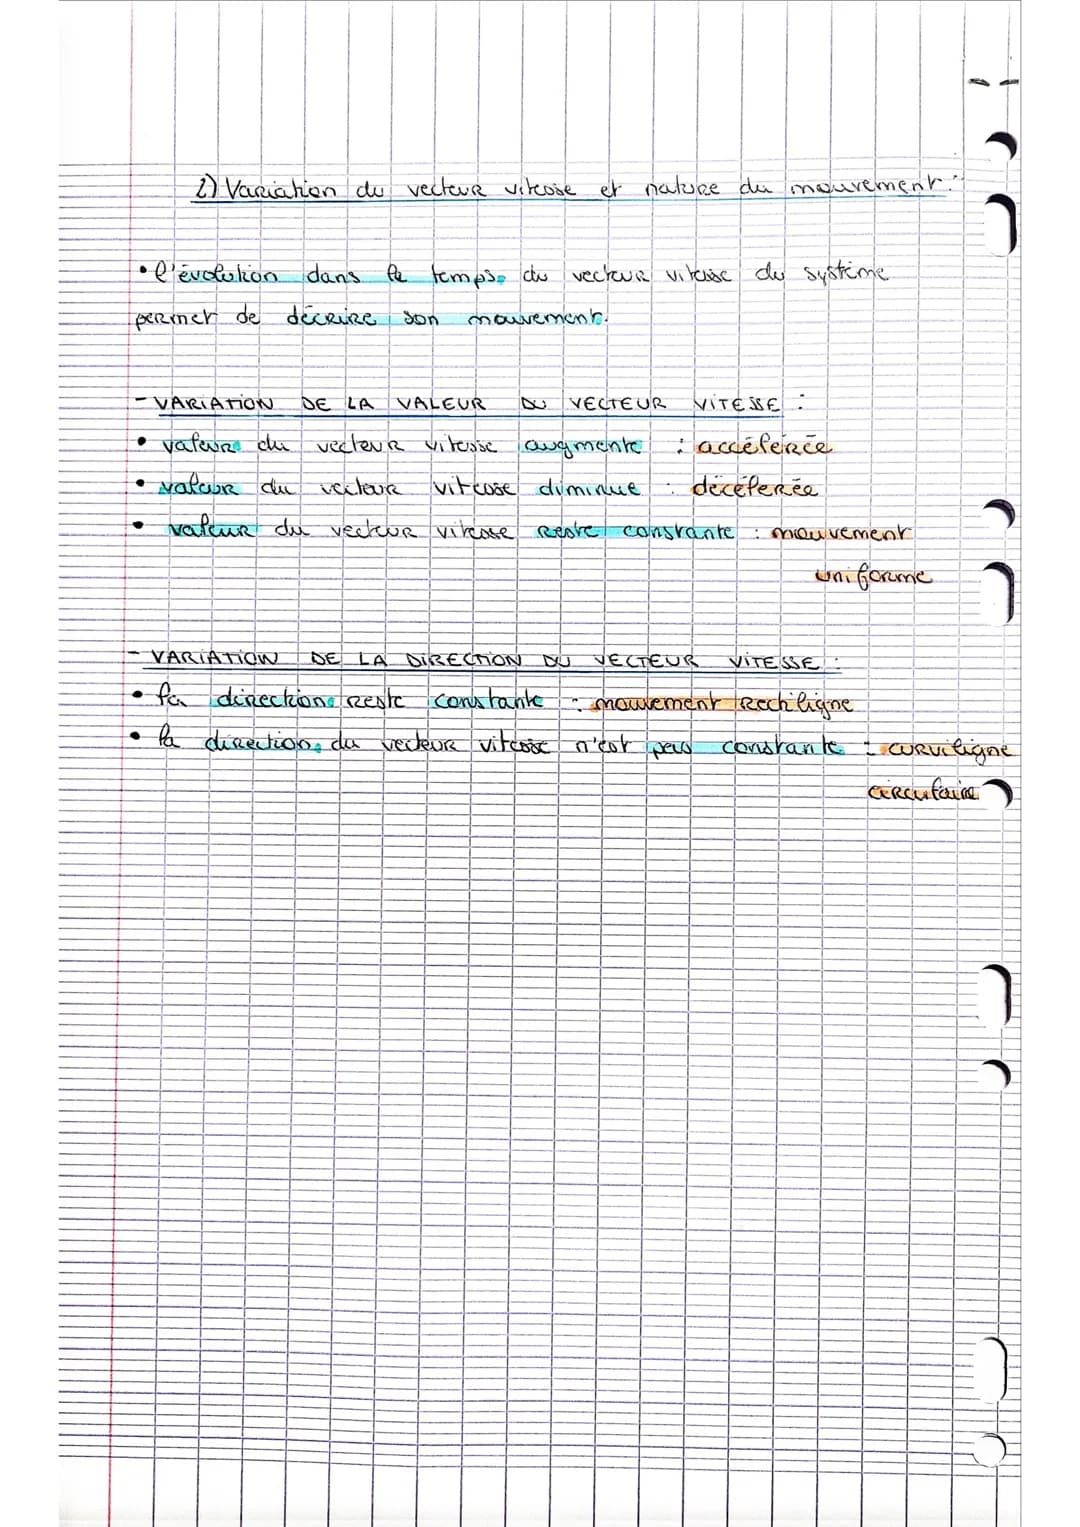 2) Variation du vecteur vitesse et nature du mouvement :
• l'évolution dans le temps du vecteur vitesse du système
permet de décrire son mouvement.
- VARIATION DE LA VALEUR DU VECTEUR VITESSE :
• valeur du vecteur vitesse augmente : accélérée
• valeur du vecteur vitesse diminue : décélerée
• valeur du vecteur vitesse reste constante : mouvement
uniforme
- VARIATION DE LA DIRECTION DU VECTEUR VITESSE :
• la direction reste constante : mouvement rectiligne
• la direction du vecteur vitesse n'est pas constante : curviligne
circulaire